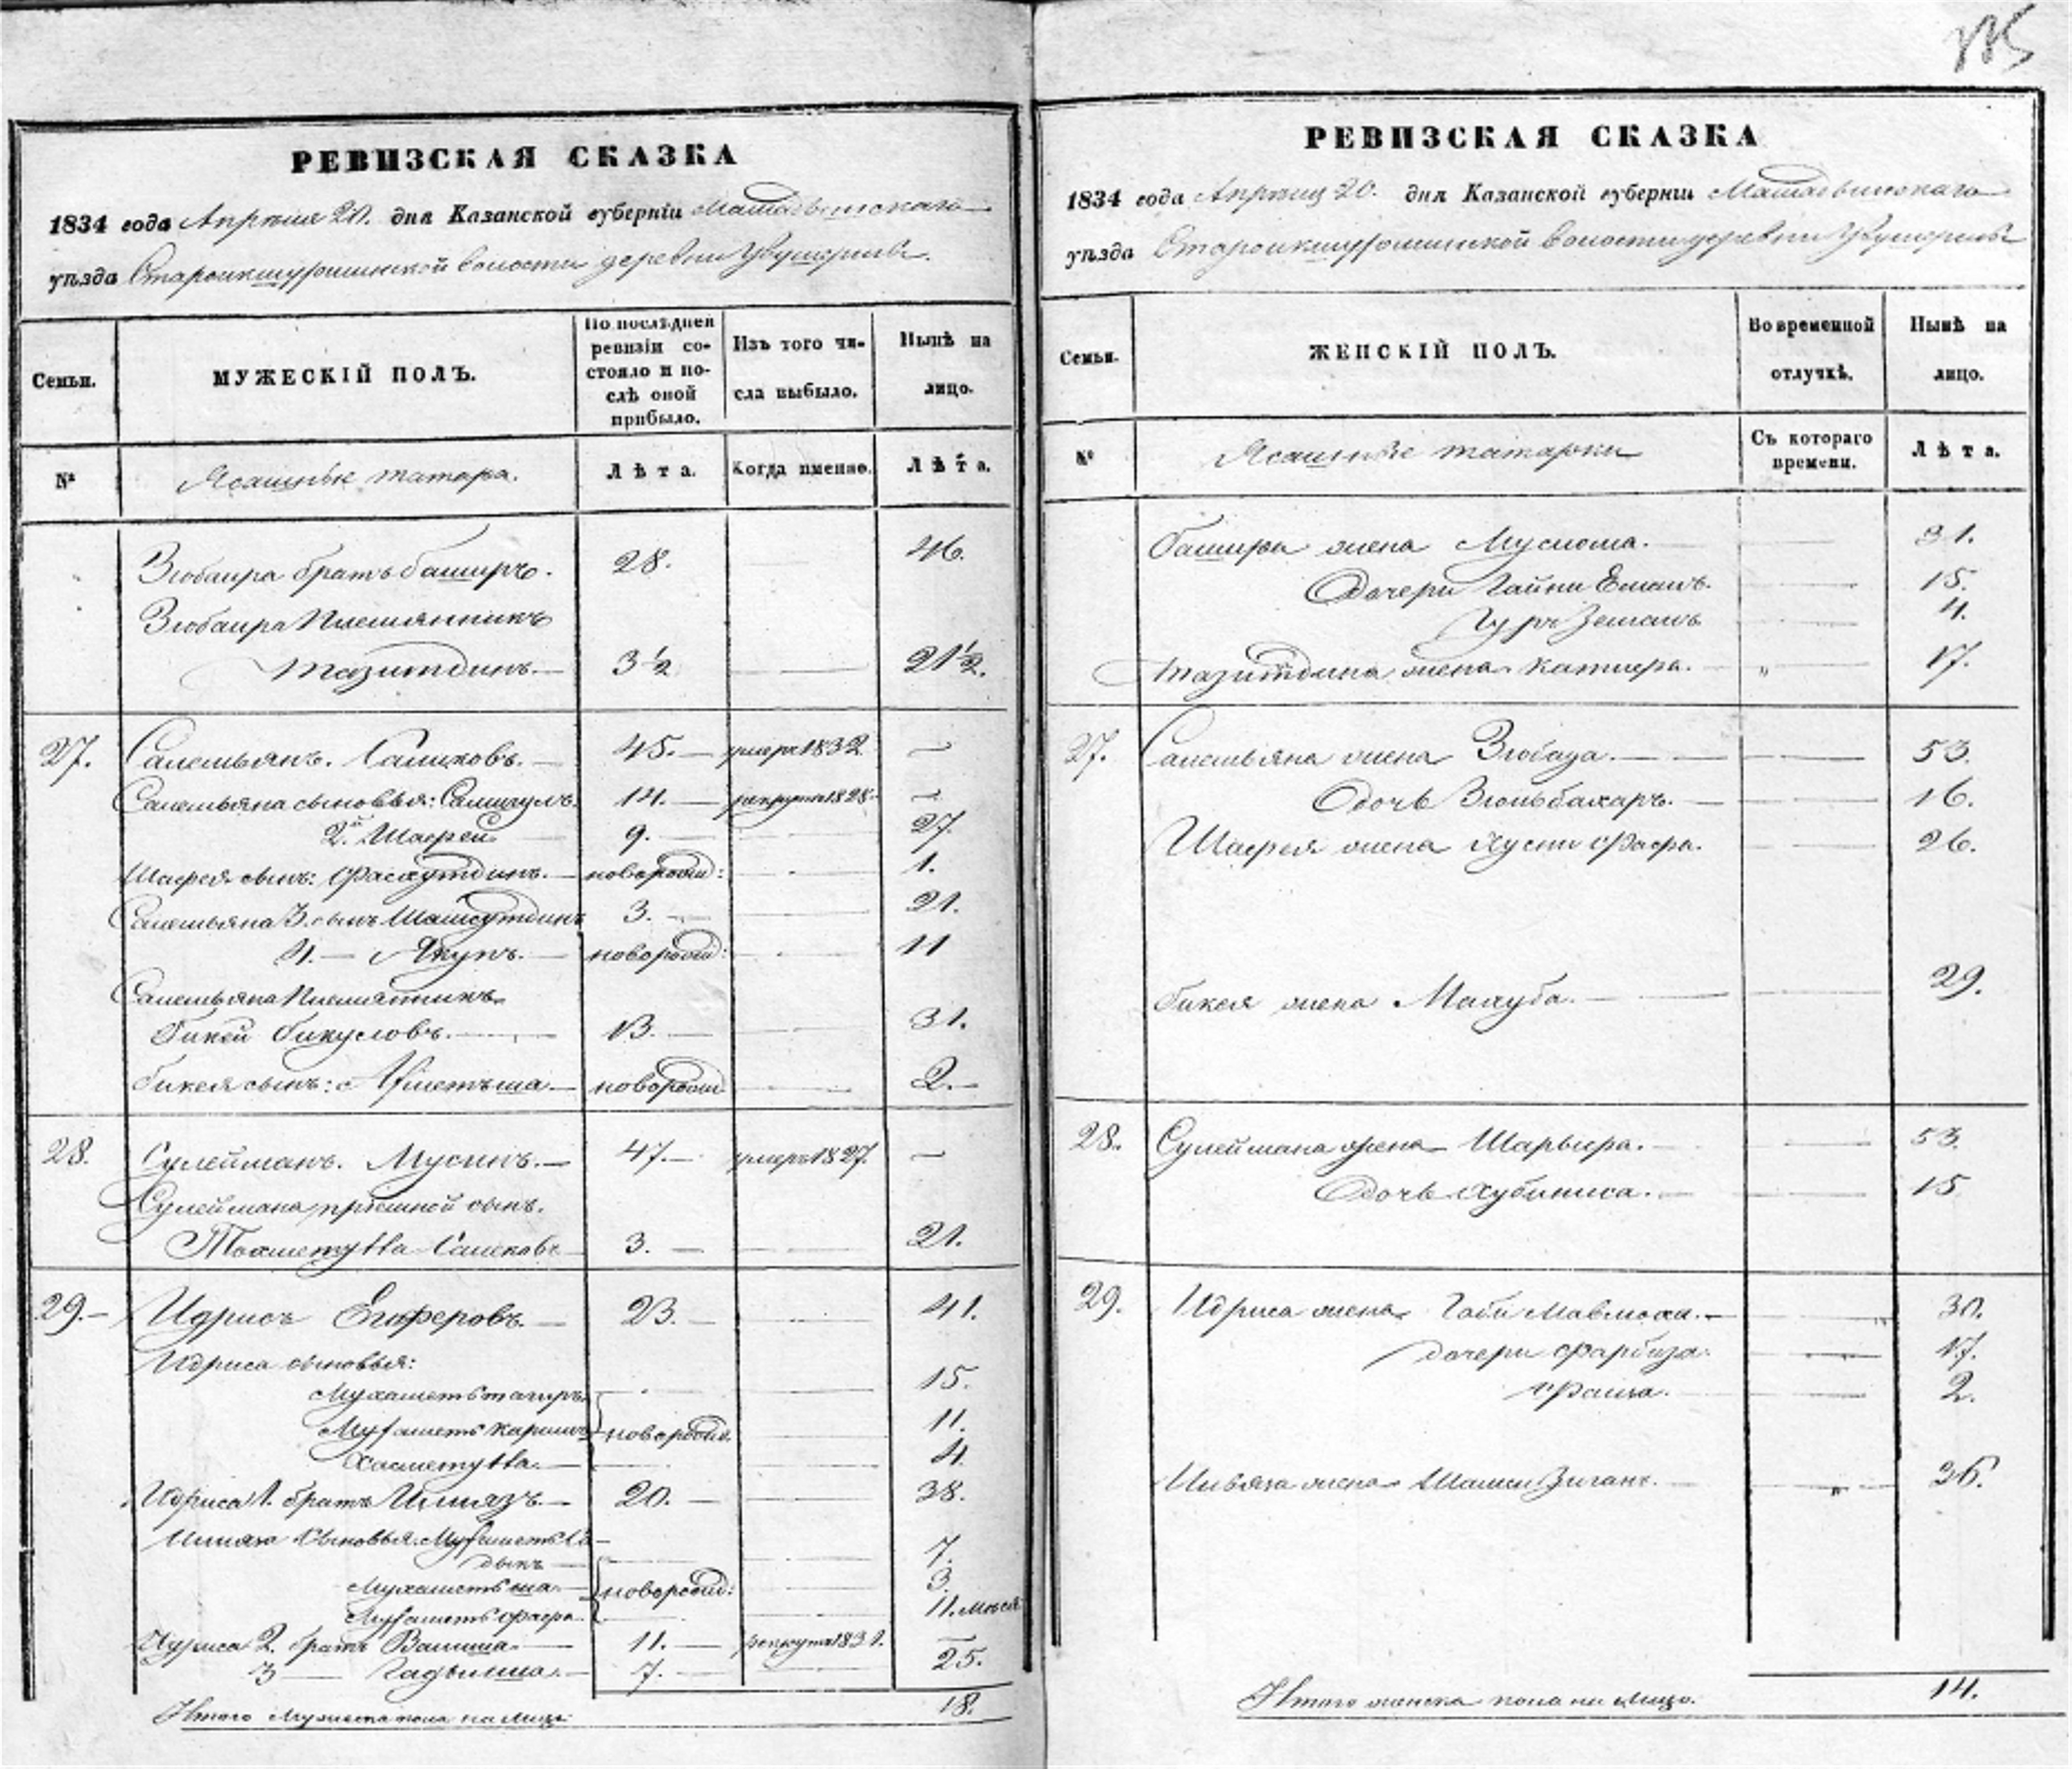 115
РЕВИЗСКАЯ СКАЗКА
1834 года Апреля 20. дня Казанской губерніи Мамадышскаго
уѣзда волости деревни
Семьи.
МУЖЕСКІЙ ПОЛЪ.
По послѣдней ревизіи состояло и послѣ оной прибыло.
Изъ того числа выбыло.
Нынѣ на лицо.
№
Ясашные татара.
Лѣта.
Когда именно.
Лѣта.
Зюбаира братъ Баширъ. 28. 46.
Зюбаира Племянникъ
Тазитдинъ. 3½ 21½.
27. Салемьянъ. Салиховъ. 45. умеръ 1832
Салемьяна сыновья: 14. рекрутъ 1828.
2й Шафей 9. 27.
Шафея сынъ: Фасхутдинъ. новорожд: 1.
Салемьяна 3. сынъ Шамсутдинъ 3. 21.
4. Якупъ. новорожд: 11
Салемьяна Племянникъ
Бикей Бикуловъ. 13. 31.
Бикея сынъ: Ахметьша новорожд 2.
28. Сулейманъ. Мусинъ. 47. умеръ 1827.
Сулеймана пріемной сынъ.
Тохметулла 3. 21.
29. Идрисъ Егаферовъ. 23. 41.
Идриса сыновья:
Мухаметьтагиръ 15.
Мухаметь каримъ новорожд. 11.
Хасметулла 4.
Идриса 1. братъ Ильязъ. 20. 38.
Ильяза сыновья: Мухаметь Са-
дыкъ 7.
Мухаметь ша новорожд: 3.
Мухаметь фафа 11. мѣся
Идриса 2. братъ Валиша 11. рекрутъ 1831.
3 Гадыльша. 7. 25.
Итого Мужеска пола на лицо 18.
РЕВИЗСКАЯ СКАЗКА
1834 года Апреля 20. дня Казанской губерніи Мамадышскаго
уѣзда волости деревни
Семьи.
ЖЕНСКІЙ ПОЛЪ.
Во временной отлучкѣ.
Нынѣ на лицо.
№
Ясашные татарки
Съ котораго времени.
Лѣта.
Башира жена Муслюма. 31.
Дочери Гайни Емалъ. 15.
Гуръ Земалъ 4.
Тазитдина жена Катифа. „ 17.
27. Салемьяна жена Зюбада. 53.
Дочь Зюльбахаръ. 16.
Шафея жена Хусни Фафа. 26.
Бикея жена Махуба. 29.
28. Сулеймана жена Шарыфа. 53.
Дочь Хубиниса. 15
29. Идриса жена Габи 30.
дочери Фарбиза 17.
Фаиза. 2.
Ильяза жена Шамси Зиганъ. „ 36.
Итого женска пола на лицо. 14.